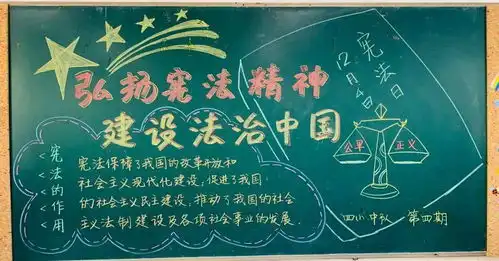 弘扬宪法精神
建设法治中国
<宪法的作用
宪法保障了我国的改革开放和
社会主义现代化建设，促进了我国
的社会主义民主建设，推动了我国的社会
主义法制建设及各项社会事业的发展.
宪法日
12月4日
公平 正义
四(1)中队 第四期